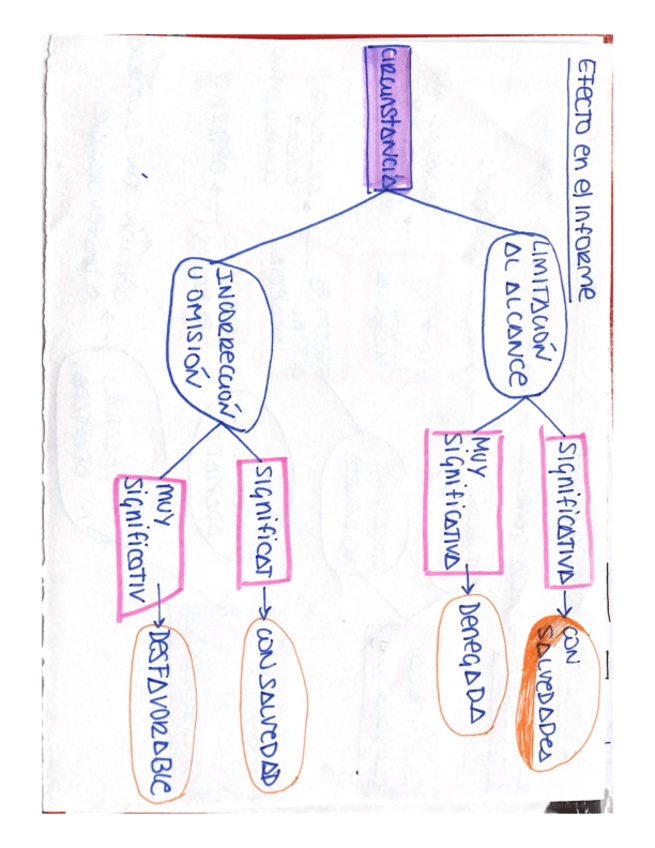 Efecto en el informe
circunstancia
LIMITACIÓN
AL ALCANCE
Significativa
CON
SALVEDADES
MUY
Significativa
Denegada
INCORRECCIÓN
U OMISIÓN
Significat
CON SALVEDAD
muy
Significativ
DESFAVORABLE